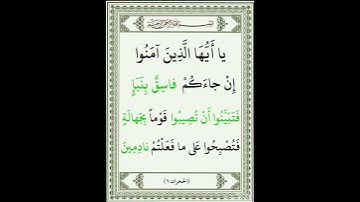 بسم الله الرحمن الرحيم
يا أَيُّهَا الَّذِينَ آمَنُوا
إِنْ جاءَكُمْ فاسِقٌ بِنَبَإٍ
فَتَبَيَّنُوا أَنْ تُصِيبُوا قَوْماً بِجَهالَةٍ
فَتُصْبِحُوا عَلى ما فَعَلْتُمْ نادِمِينَ
(الحجرات ٦)